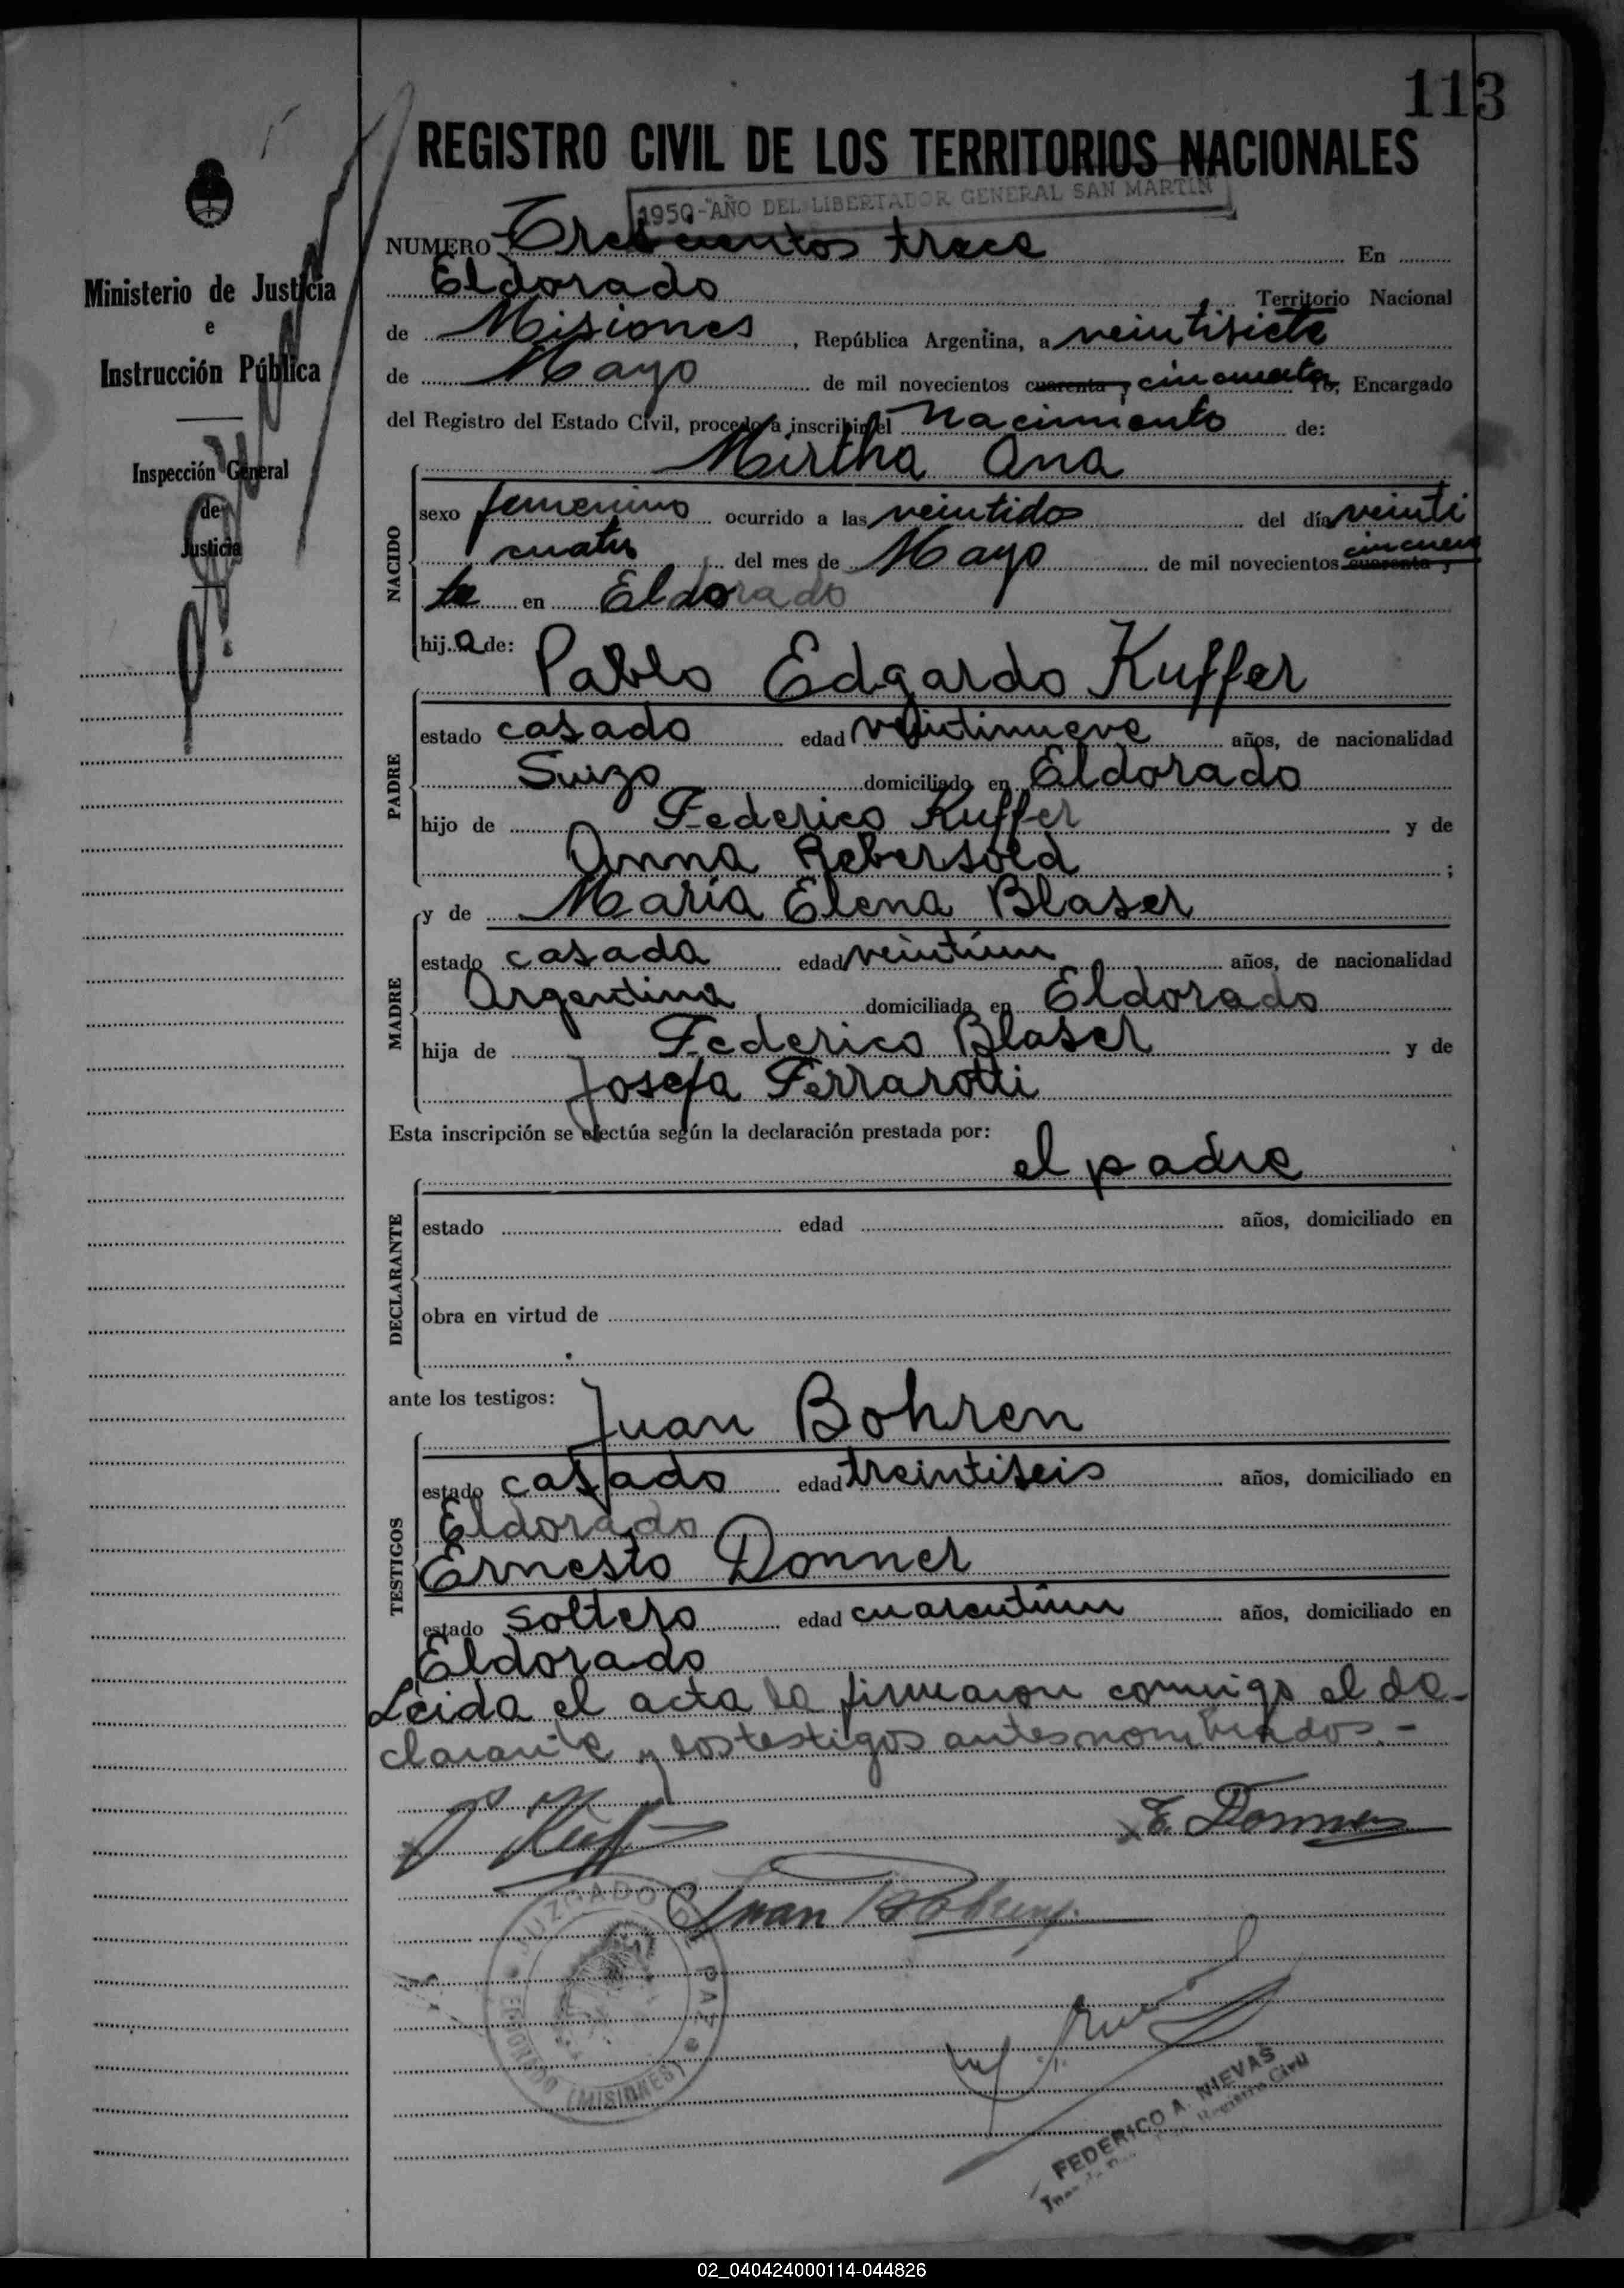 113
REGISTRO CIVIL DE LOS TERRITORIOS NACIONALES
1950-"AÑO DEL LIBERTADOR GENERAL SAN MARTIN"
Ministerio de Justicia
e
Instrucción Pública
Inspección General
de
Justicia
NUMERO Trescientos trece En
Eldorado Territorio Nacional
de Misiones, República Argentina, a veintisiete
de Mayo de mil novecientos cuarenta y cincuenta Yo, Encargado
del Registro del Estado Civil, procedo a inscribir el Nacimiento de:
NACIDO
Mirtha Ana
sexo femenino ocurrido a las veintidos del día veinti
cuatro del mes de Mayo de mil novecientos cuarenta y cincuen
ta en Eldorado
hija de:
Pablo Edgardo Kuffer
PADRE
estado casado edad veintinueve años, de nacionalidad
Suizo domiciliado en Eldorado
hijo de Federico Kuffer y de
Anna Aebersold ;
MADRE
y de María Elena Blaser
estado casada edad veintiún años, de nacionalidad
Argentina domiciliada en Eldorado
hija de Federico Blaser y de
Josefa Ferrarotti
Esta inscripción se efectúa según la declaración prestada por:
el padre
DECLARANTE
estado edad años, domiciliado en
obra en virtud de
ante los testigos:
Juan Bohren
TESTIGOS
estado casado edad treintiseis años, domiciliado en
Eldorado
Ernesto Donner
estado soltero edad cuarentiún años, domiciliado en
Eldorado
Leida el acta la firmaron conmigo el de-
clarante y los testigos antes nombrados.-
E. Donner
Juan Bohren
JUZGADO DE PAZ
ELDORADO (MISIONES)
FEDERICO A. NIEVAS
Registro Civil
02_040424000114-044826